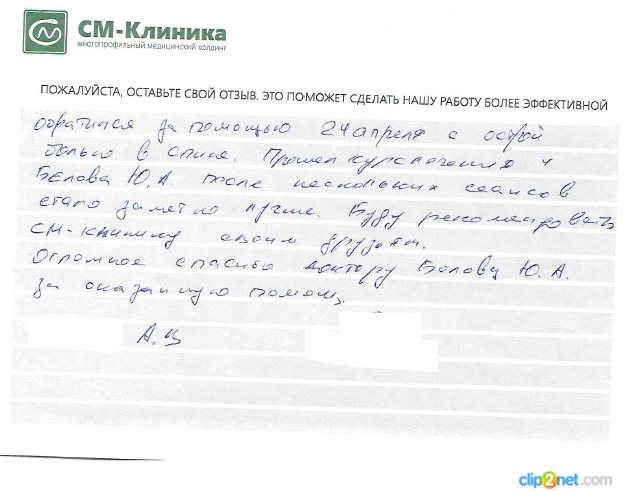 СМ-Клиника
многопрофильный медицинский холдинг
ПОЖАЛУЙСТА, ОСТАВЬТЕ СВОЙ ОТЗЫВ. ЭТО ПОМОЖЕТ СДЕЛАТЬ НАШУ РАБОТУ БОЛЕЕ ЭФФЕКТИВНОЙ
обратился за помощью 24 апреля с острой
болью в спине. Прошел курс лечения у
Белова Ю.А. после нескольких сеансов
стало заметно лучше. Буду рекомендовать
СМ-клинику своим друзьям.
Огромное спасибо доктору Белову Ю.А.
за оказанную помощь.
А.Ц
clip2net.com